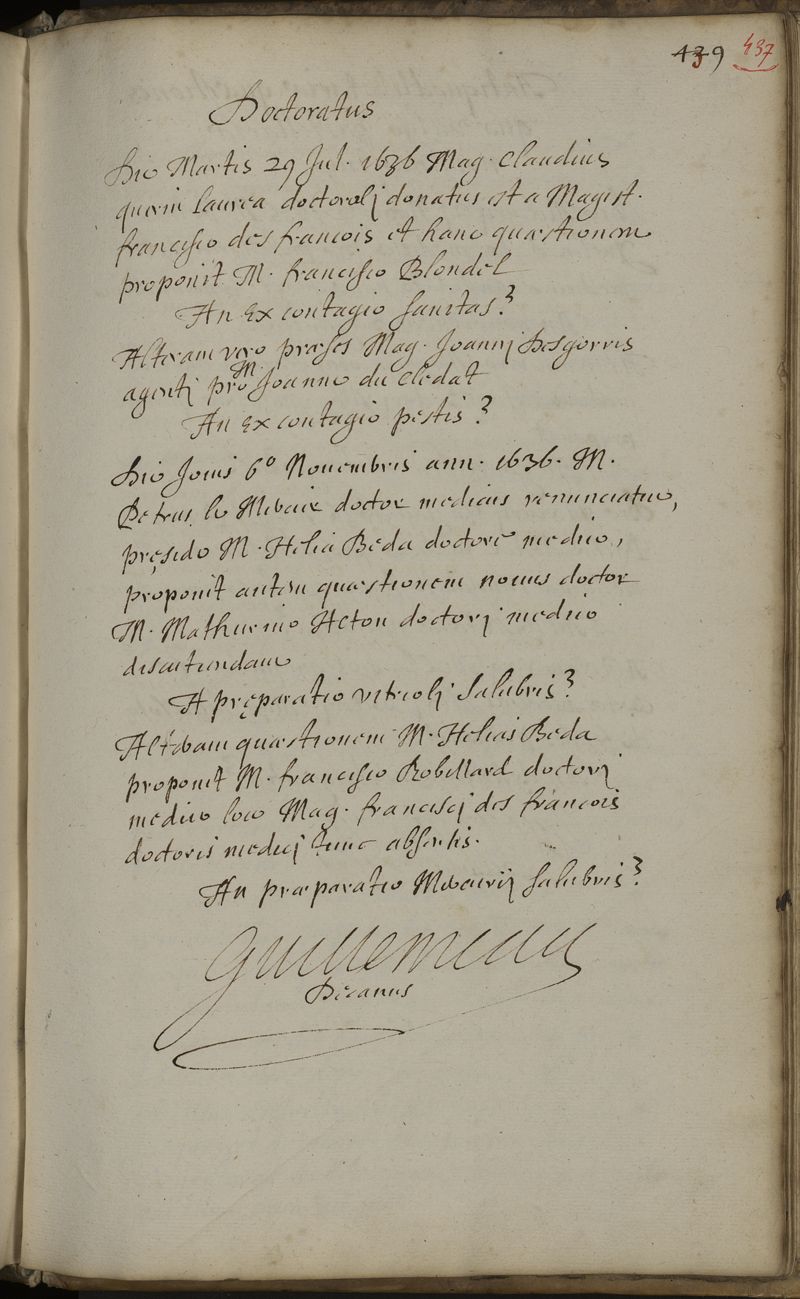 439 437
Doctoratus
Die Martis 29 Jul. 1636 Mag. Claudius
laurea doctorali donatus est a Magist.
francisco des francois et hanc quæstionem
proponit M. francisco Blondel
An Ex contagio sanitas?
Alteram vero præses Mag. Joanni Desgorris
agenti pro M. Joanne du Cledat
An ex contagio pestis?
Die Jovis 6º Novembris ann. 1636. M.
Petrus le Mercier doctor medicus renunciatur,
pręside M. Helia Beda doctore medico,
proponit autem quæstionem novus doctor
M. Mathurino Heton doctori medico
discutiendam
A pręparatio vitrioli salubris?
Alteram quæstionem M. Helias Beda
proponit M. francisco Robillard doctori
medico loco Mag. francisci des francois
doctoris medici tunc absentis.
An præparatio Mercurij salubris?
Guillemeau
Decanus